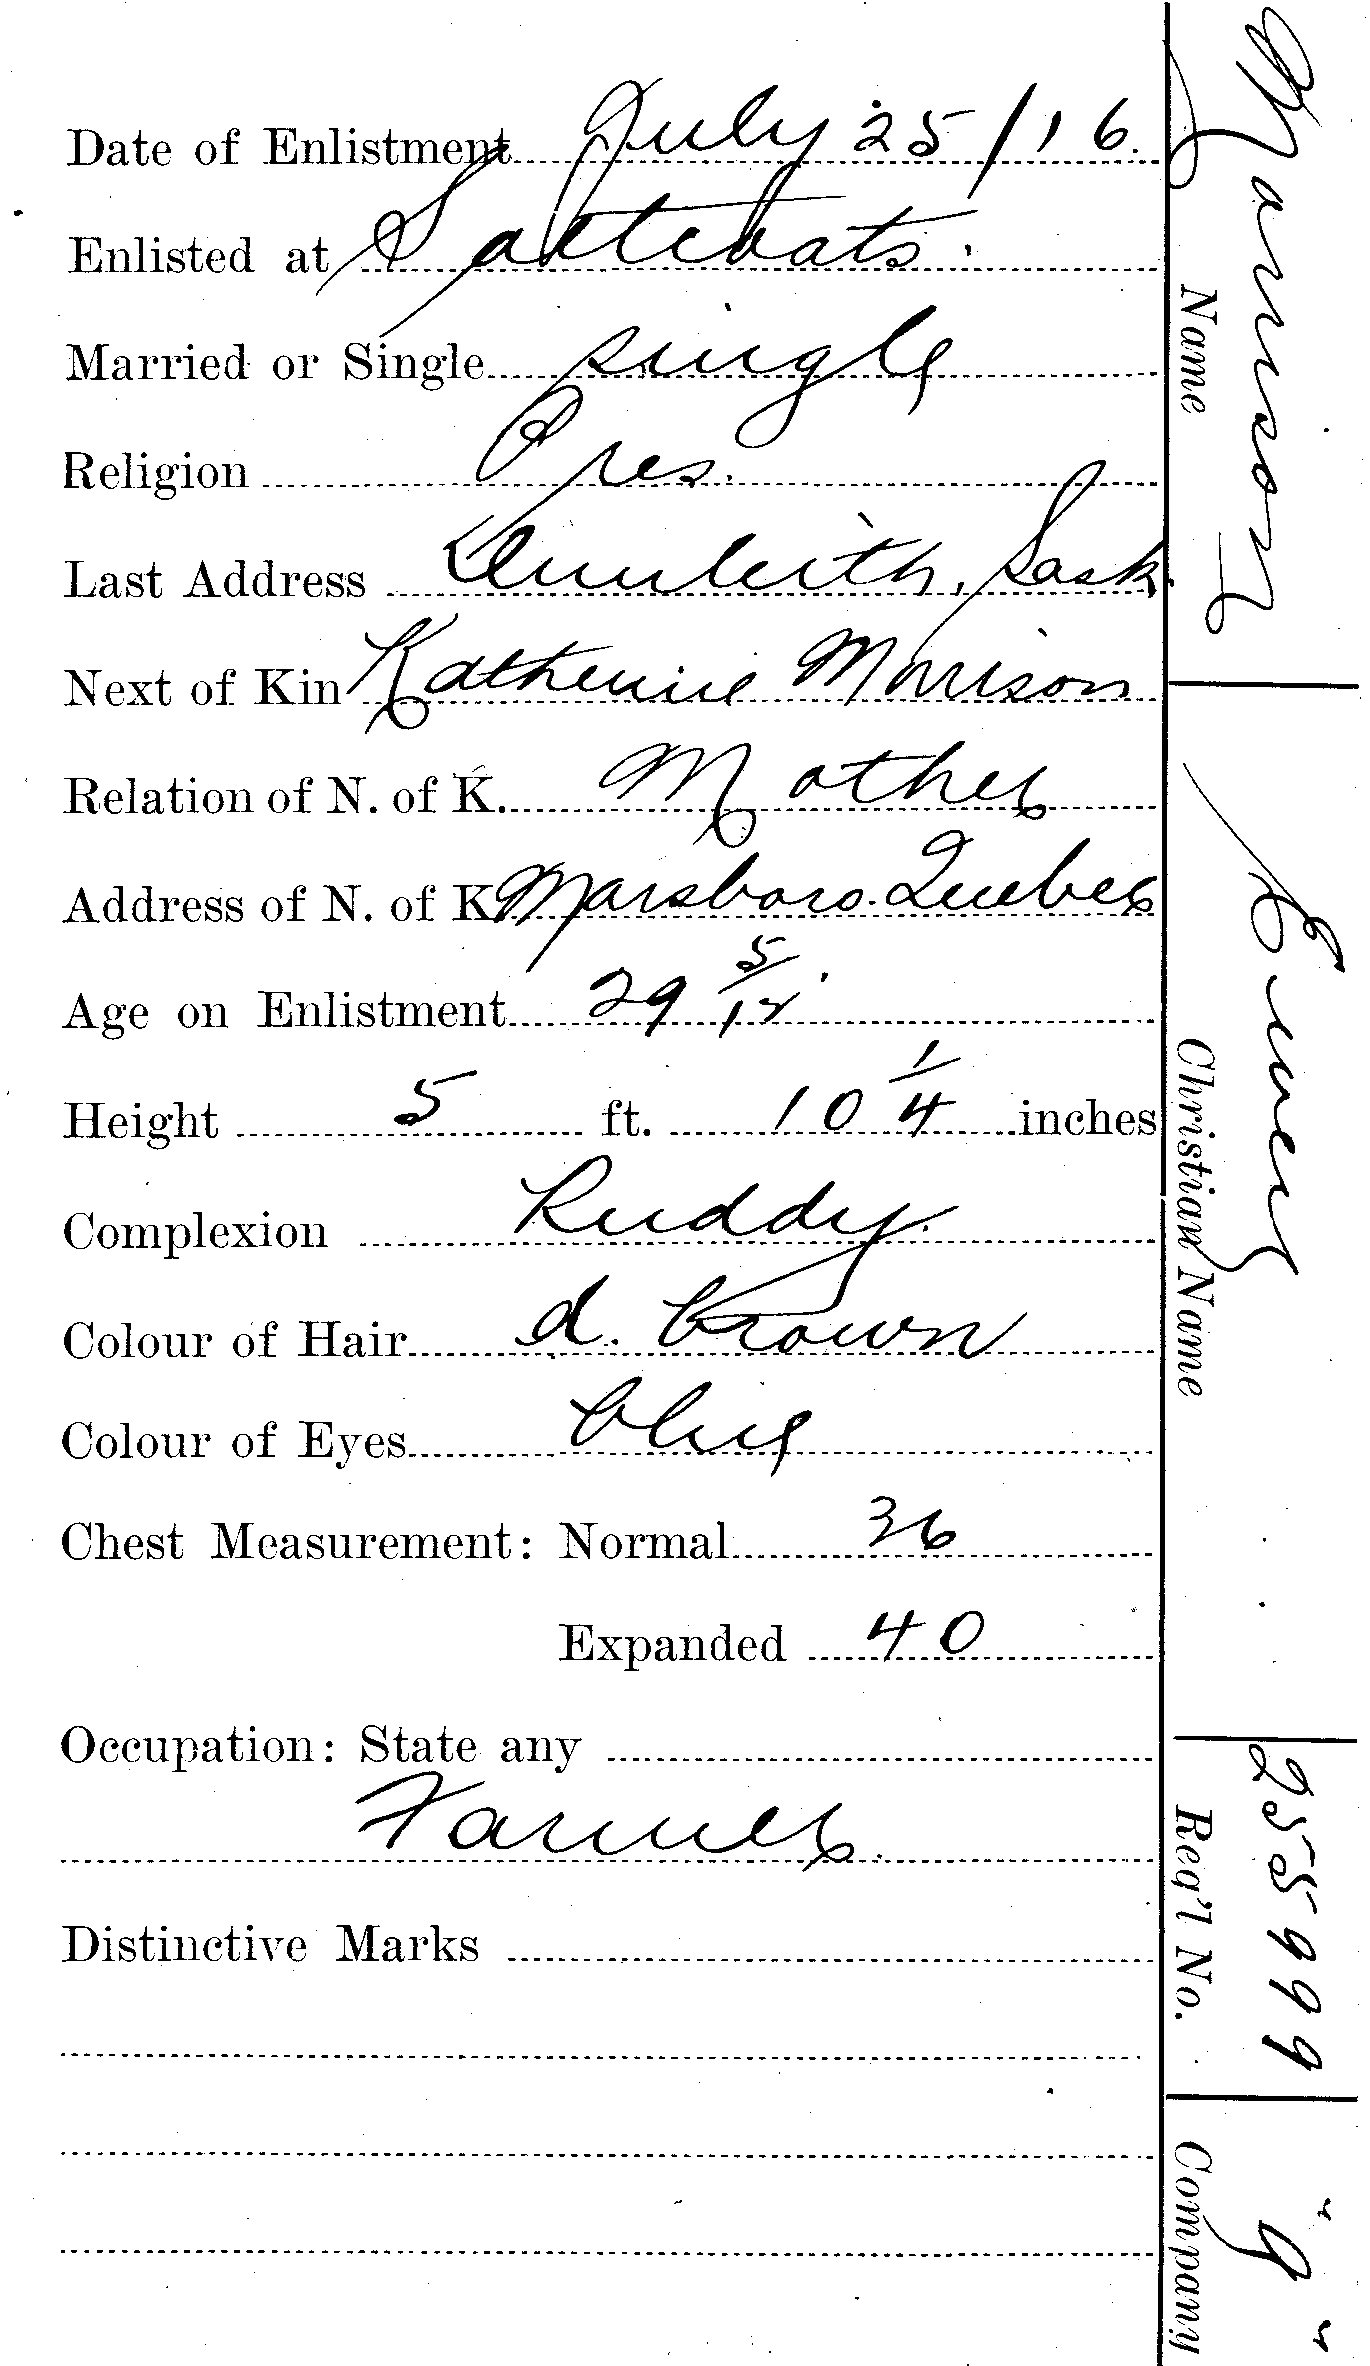 Date of Enlistment July 25/16.
Enlisted at Battlefords.
Married or Single single
Religion Pres.
Last Address Dunleith, Sask.
Next of Kin Katherine Morrison
Relation of N. of K. Mother
Address of N. of K. Marsboro. Quebec
Age on Enlistment 29 5/12
Height 5 ft. 10 1/4 inches
Complexion Ruddy.
Colour of Hair d. brown
Colour of Eyes blue
Chest Measurement: Normal 36
Expanded 40
Occupation: State any
Farmer.
Distinctive Marks
Name Morrison
Christian Name
Reg'l No. 255999
Company "G"